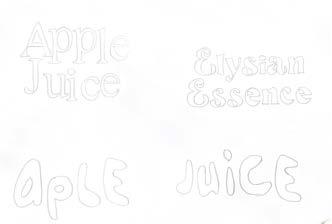 Apple
Juice
Elysian
Essence
apLE
JuiCE